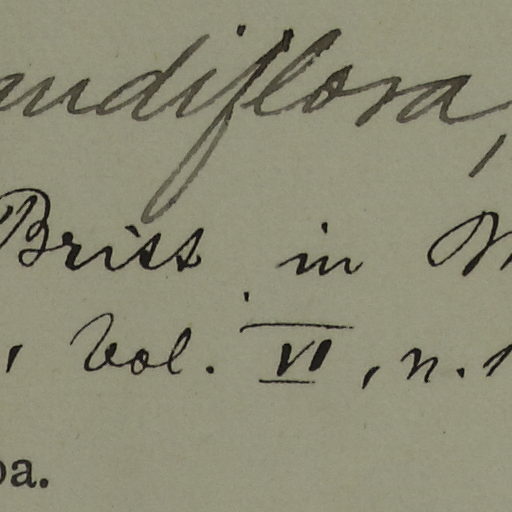 andiflora,
Briss in M
, Vol. VI, n. 1
pa.